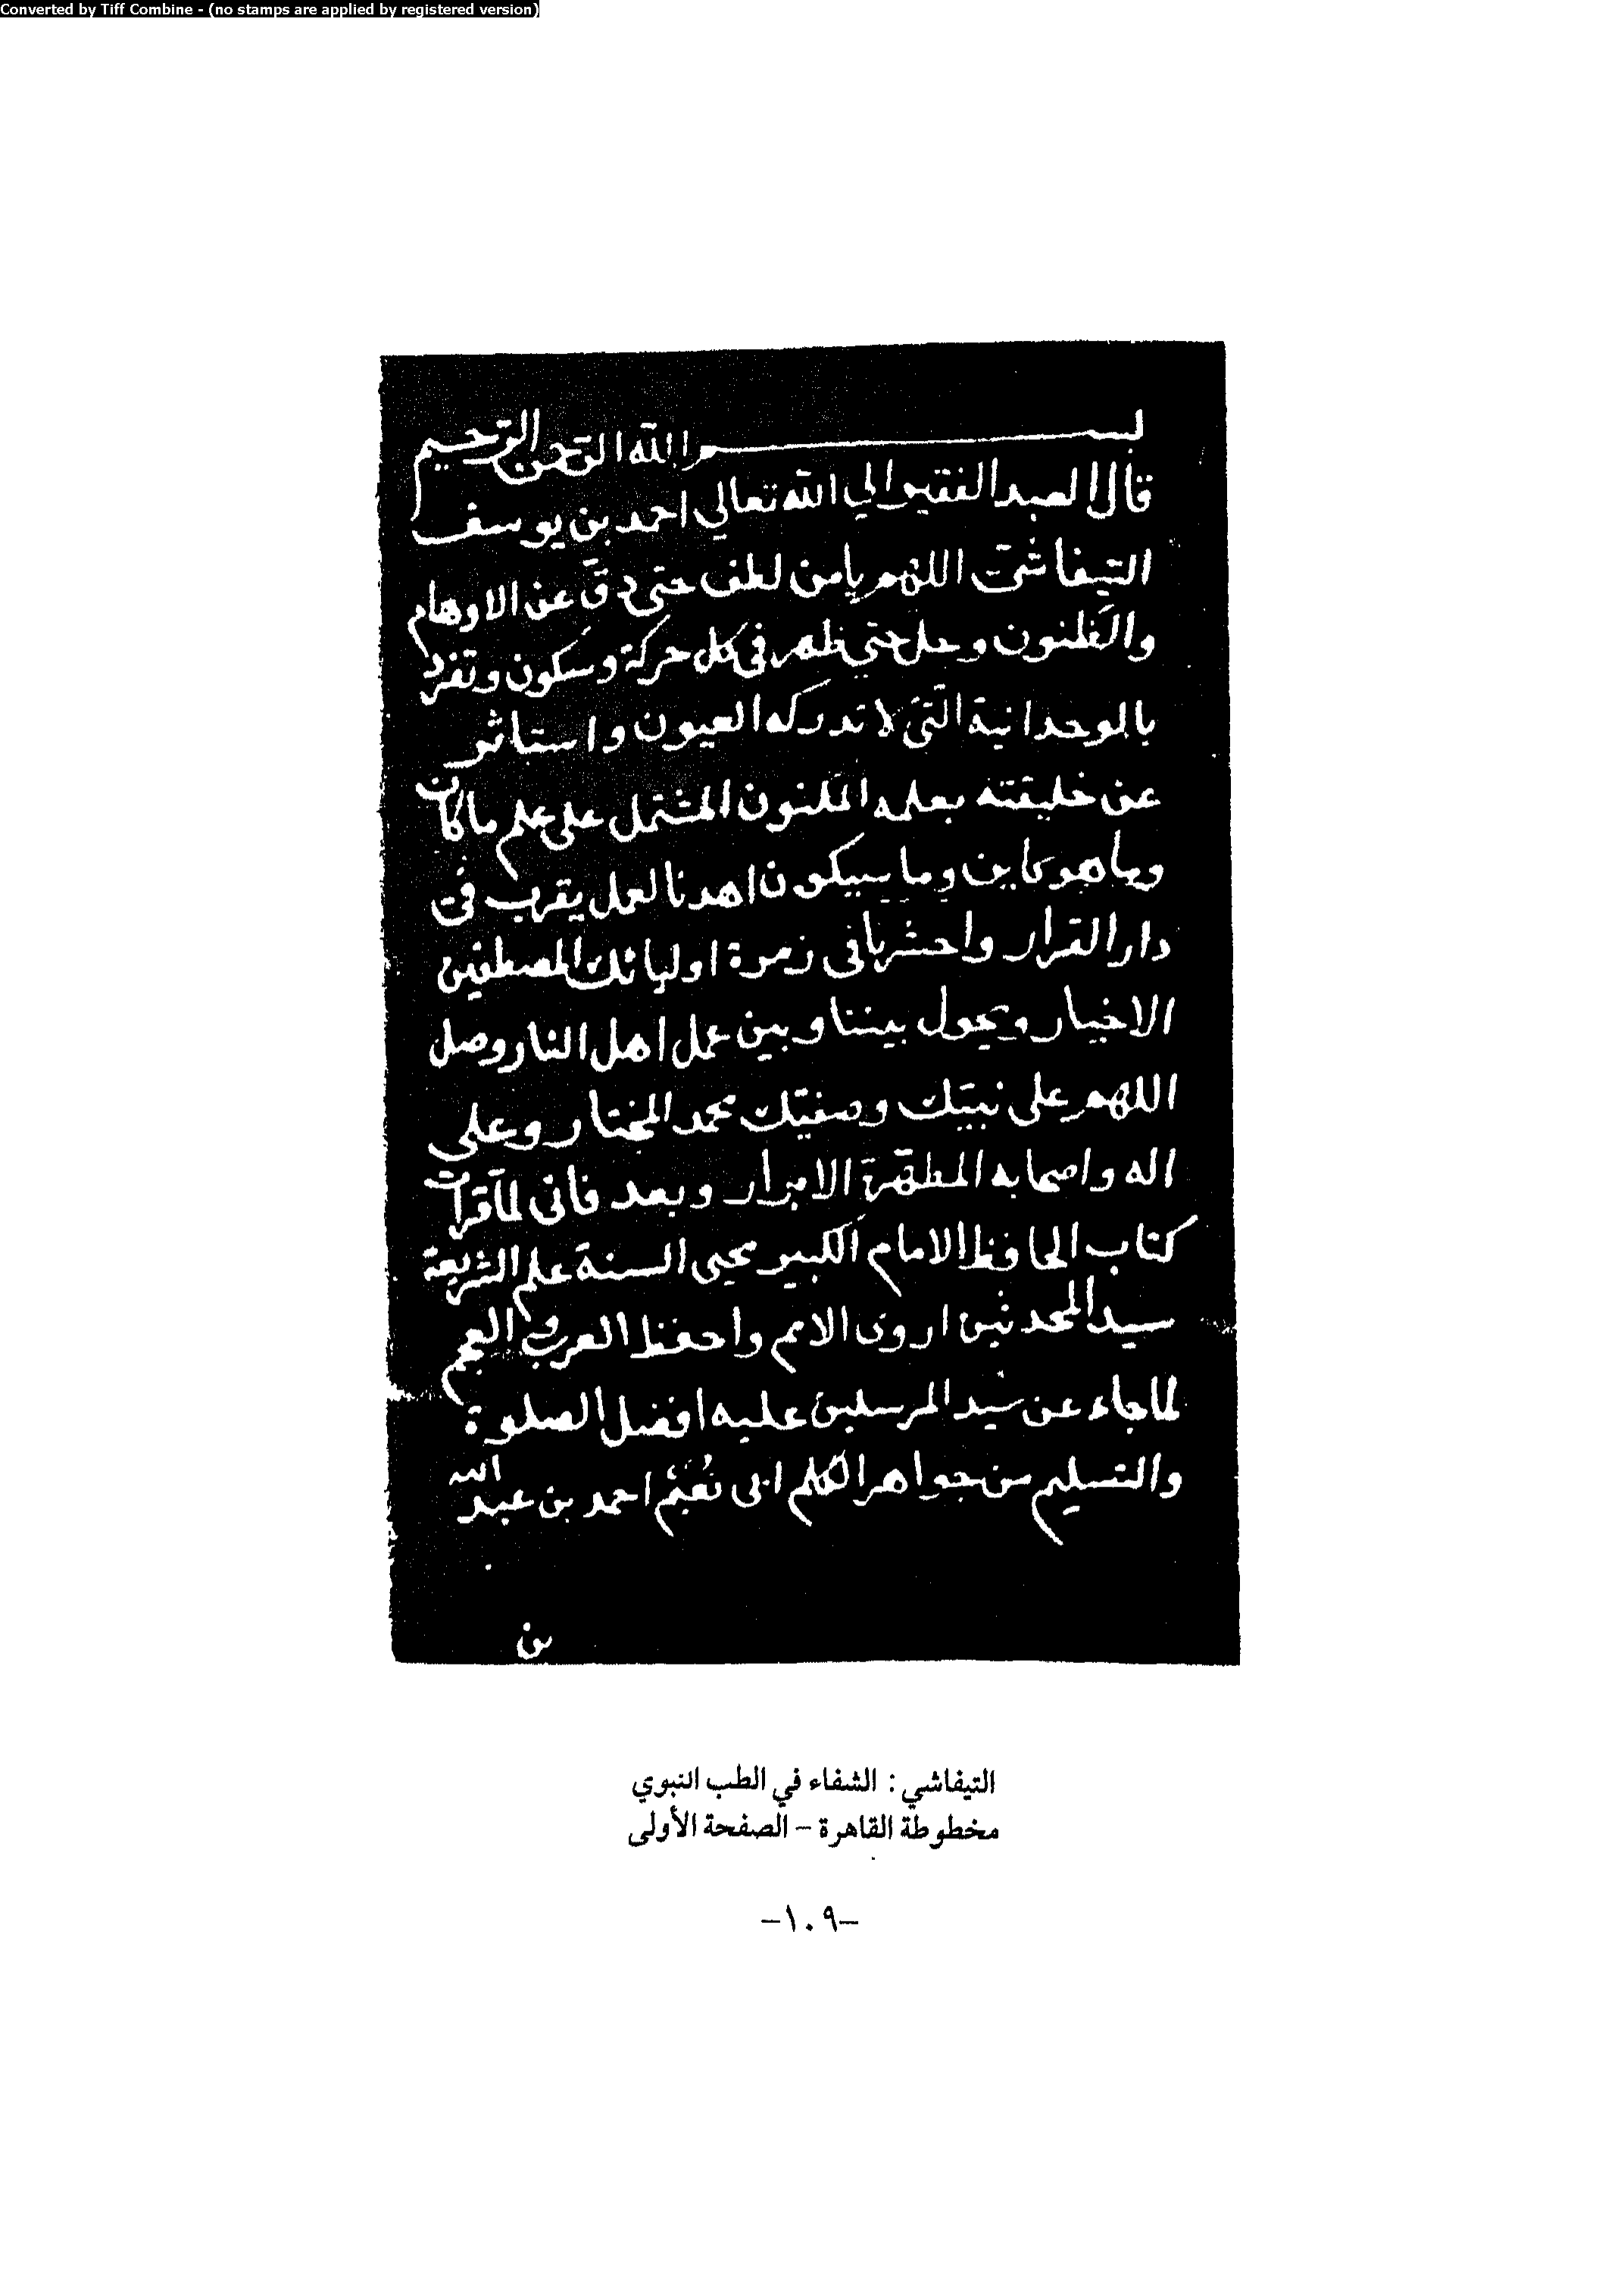 Converted by Tiff Combine - (no stamps are applied by registered version)
بسم الله الرحمن الرحيم
قال العبد الفقير الي الله تعالي احمد بن يوسف
التيفاشي اللهم يا من لطف حتى دق عن الاوهام
والظنون وجل حتي ظهر في كل حركة وسكون وتفرد
بالوحدانية التي لا تدركه العيون واستاثر
عن خليقته بعلمه المكنون المشتمل على علم ما كان
وما هو كاين وما سيكون اهدنا لعمل يقرب في
دار القرار واحشرنا في زمرة اوليائك المصطفين
الاخيار ويحول بيننا وبين عمل اهل النار وصل
اللهم على نبيك وصفيك محمد المختار وعلى
اله واصحابه المطهرة الابرار وبعد فاني لما قرات
كتاب الحافظ الامام الكبير محيي السنة علم الشريعة
سيد المحدثين اروى الامم واحفظ العرب والعجم
لما جاء عن سيد المرسلين عليه افضل الصلوة
والتسليم من جواهر الكلم ابى نُعَيْم احمد بن عبد الله
بن
التيفاشي : الشفاء في الطب النبوي
مخطوطة القاهرة - الصفحة الأولى
-١٠٩-